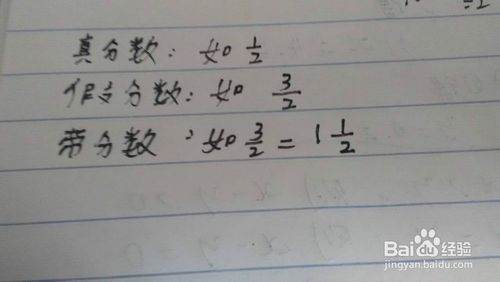 真分数：如 1/2
假分数：如 3/2
带分数：如 3/2 = 1 1/2
Baidu经验
jingyan.baidu.com